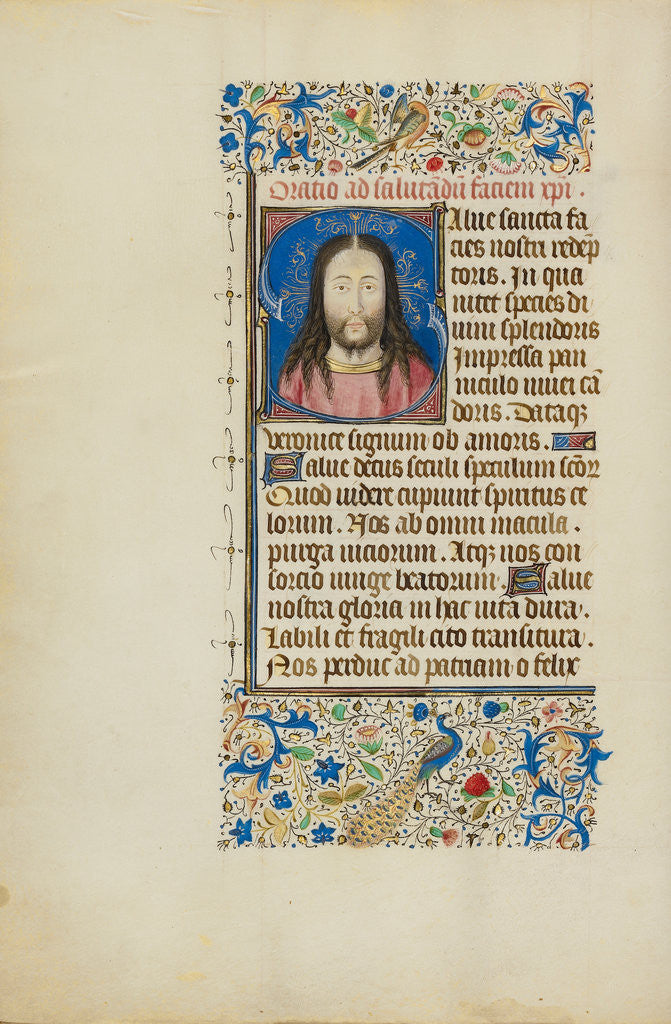 Oratio ad salutādū faciem xpi .
Salue sancta fa
cies nostri redēp
toris . In qua
nitet species di
uini splendoris
Impressa pan
niculo niuei cā
doris . Dataqȝ
veronice signum ob amoris .
Salue decus seculi speculum scōꝝ
Quod uidere cupiunt spiritus ce
lorum . Nos ab omni macula .
purga uiciorum . Atqȝ nos con
sorcio iunge beatorum . Salue
nostra gloria in hac uita dura .
Labili et fragili cito transitura .
Nos perduc ad patriam o felix